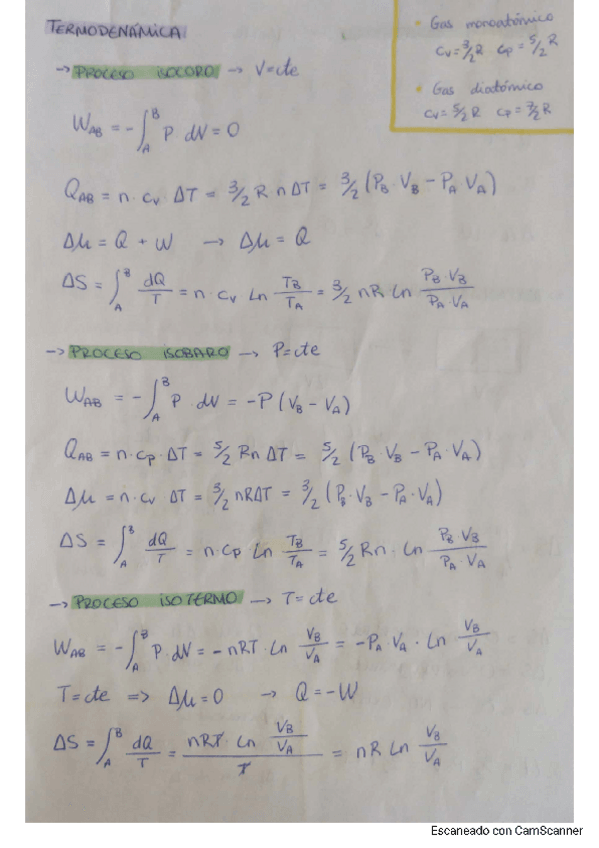 TERMODENÁMICA
• Gas monoatómico
Cv = 3/2 R Cp = 5/2 R
• Gas diatómico
Cv = 5/2 R Cp = 7/2 R
→ PROCESO ISOCORO → V = cte
W_AB = -∫_A^B P dV = 0
Q_AB = n · Cv ΔT = 3/2 R n ΔT = 3/2 (P_B · V_B - P_A V_A)
Δμ = Q + W → Δμ = Q
ΔS = ∫_A^B dQ/T = n · Cv Ln T_B/T_A = 3/2 nR Ln (P_B · V_B)/(P_A · V_A)
→ PROCESO ISOBARO → P = cte
W_AB = -∫_A^B P · dV = -P (V_B - V_A)
Q_AB = n · Cp · ΔT = 5/2 Rn ΔT = 5/2 (P_B · V_B - P_A · V_A)
Δμ = n · Cv ΔT = 3/2 nRΔT = 3/2 (P_B · V_B - P_A · V_A)
ΔS = ∫_A^B dQ/T = n · Cp Ln T_B/T_A = 5/2 Rn · Ln (P_B · V_B)/(P_A · V_A)
→ PROCESO ISOTERMO → T = cte
W_AB = -∫_A^B P · dV = -nRT · Ln V_B/V_A = -P_A · V_A · Ln V_B/V_A
T = cte => Δμ = 0 → Q = -W
ΔS = ∫_A^B dQ/T = (nRT · Ln V_B/V_A)/T = nR Ln V_B/V_A
Escaneado con CamScanner